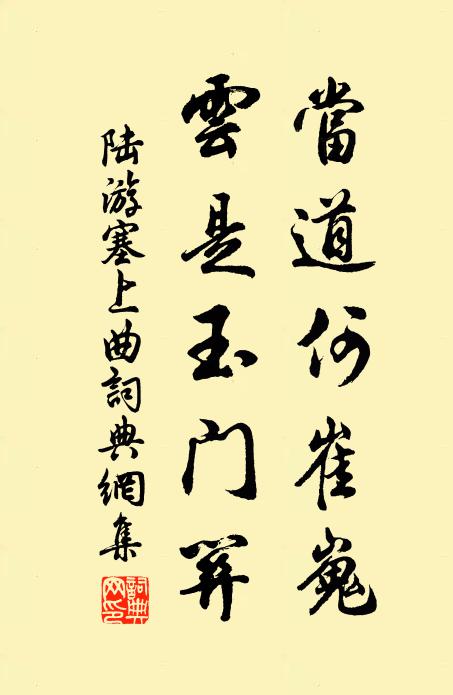 當道何崔嵬
雲是玉門關
陸游塞上曲詞典網集
詞典網印